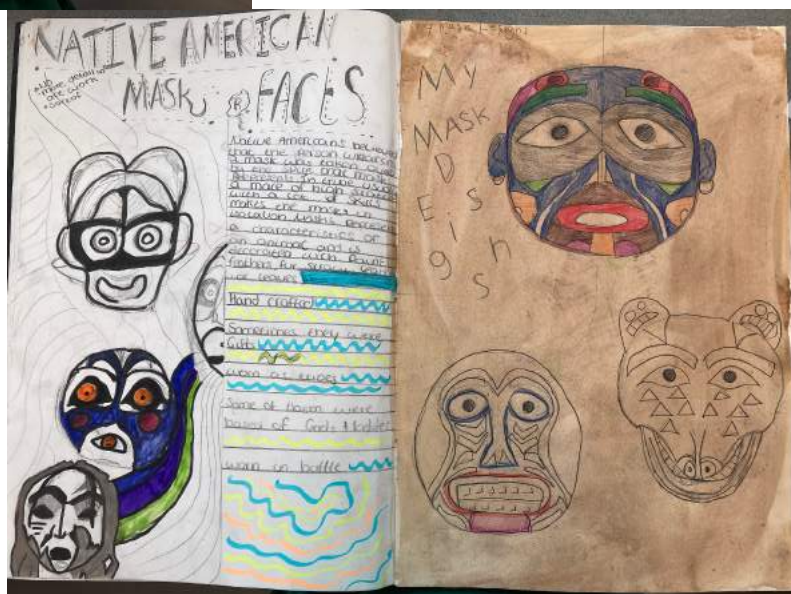 NATIVE AMERICAN
MASKS & FACES
Add
more detail
art work
Native Americans believed
that the person wearing
a mask was taken over
by the spirit that mask
represents
a
with a lot of skill
makes the masks in
isolation. Masks represent
a characteristics of
an animal and is
decorated with Paint
feathers, fur
or leaves
Hand crafted
Sometimes they were
Gifts
worn as
Some of them were
bases of Gods +
worn in battle
My
MASK
DEsigns